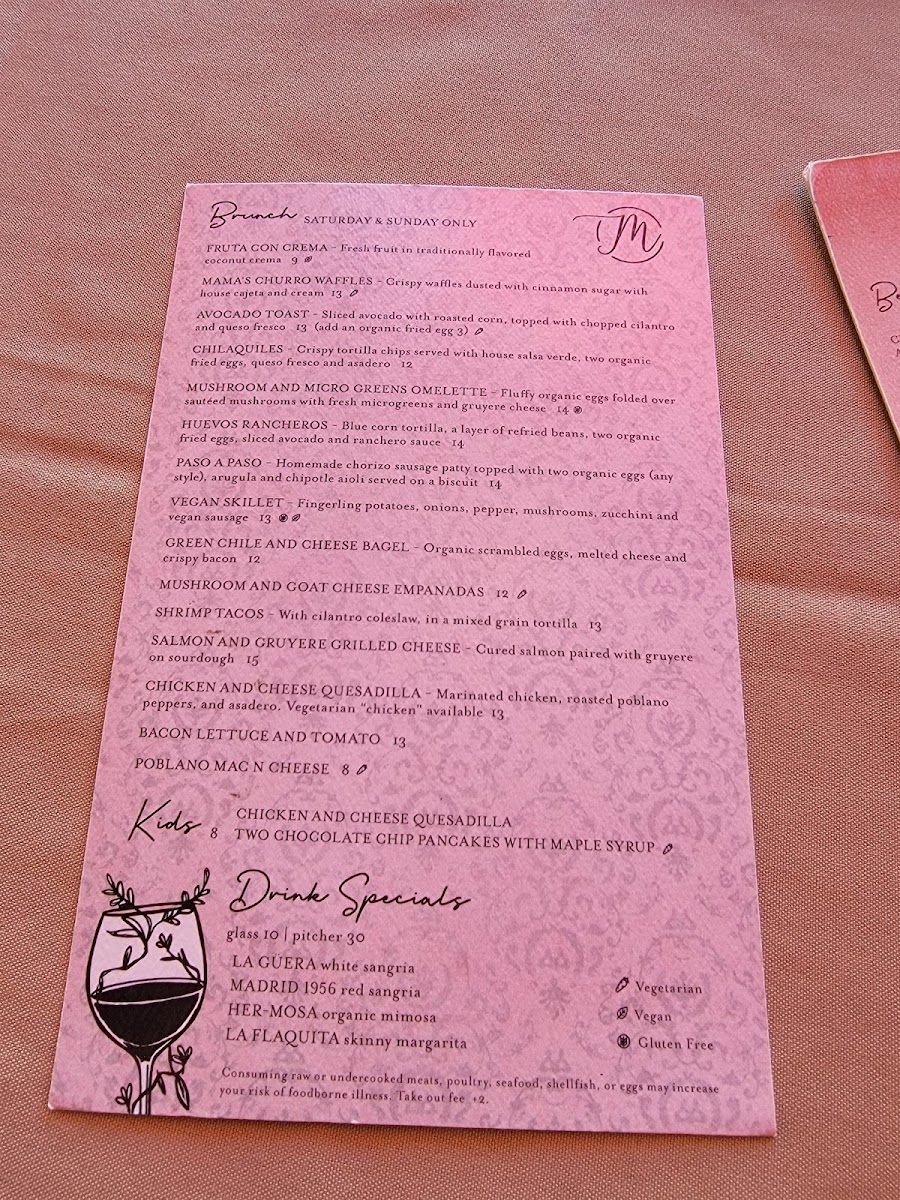 Brunch SATURDAY & SUNDAY ONLY
M
FRUTA CON CREMA – Fresh fruit in traditionally flavored
coconut crema 9
MAMA'S CHURRO WAFFLES – Crispy waffles dusted with cinnamon sugar with
house cajeta and cream 13
AVOCADO TOAST – Sliced avocado with roasted corn, topped with chopped cilantro
and queso fresco 13 (add an organic fried egg 3)
CHILAQUILES – Crispy tortilla chips served with house salsa verde, two organic
fried eggs, queso fresco and asadero 12
MUSHROOM AND MICRO GREENS OMELETTE – Fluffy organic eggs folded over
sautéed mushrooms with fresh microgreens and gruyere cheese 14
HUEVOS RANCHEROS – Blue corn tortilla, a layer of refried beans, two organic
fried eggs, sliced avocado and ranchero sauce 14
PASO A PASO – Homemade chorizo sausage patty topped with two organic eggs (any
style), arugula and chipotle aioli served on a biscuit 14
VEGAN SKILLET – Fingerling potatoes, onions, pepper, mushrooms, zucchini and
vegan sausage 13
GREEN CHILE AND CHEESE BAGEL – Organic scrambled eggs, melted cheese and
crispy bacon 12
MUSHROOM AND GOAT CHEESE EMPANADAS 12
SHRIMP TACOS – With cilantro coleslaw, in a mixed grain tortilla 13
SALMON AND GRUYERE GRILLED CHEESE – Cured salmon paired with gruyere
on sourdough 15
CHICKEN AND CHEESE QUESADILLA – Marinated chicken, roasted poblano
peppers, and asadero. Vegetarian "chicken" available 13
BACON LETTUCE AND TOMATO 13
POBLANO MAC N CHEESE 8
Kids 8 CHICKEN AND CHEESE QUESADILLA
TWO CHOCOLATE CHIP PANCAKES WITH MAPLE SYRUP
Drink Specials
glass 10 | pitcher 30
LA GÜERA white sangria
MADRID 1956 red sangria
HER-MOSA organic mimosa
LA FLAQUITA skinny margarita
Vegetarian
Vegan
Gluten Free
Consuming raw or undercooked meats, poultry, seafood, shellfish, or eggs may increase
your risk of foodborne illness. Take out fee +2.